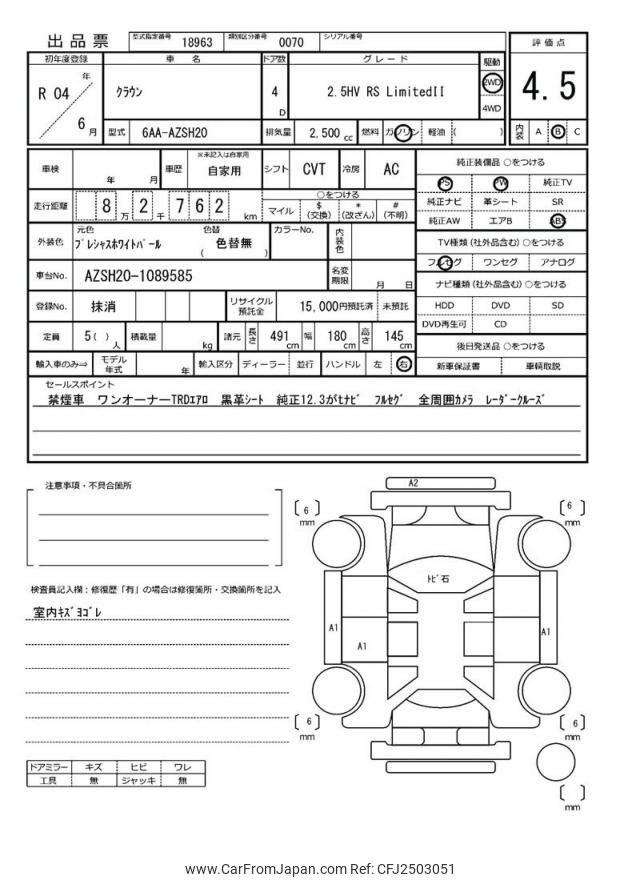 出品票 型式指定番号 18963 類別区分番号 0070 シリアル番号
初年度登録 車名 ドア数 グレード 駆動 評価点
R 04 年 6 月 クラウン 4 D 2.5HV RS LimitedII 2WD 4WD 4.5
型式 6AA-AZSH20 排気量 2,500 cc 燃料 ガソリン 軽油 ( ) 内装 A B C
車検 年 月 車歴 ※未記入は自家用 自家用 シフト CVT 冷房 AC 純正装備品 ○をつける
PS PW 純正TV
走行距離 8 万 2 千 7 6 2 km ○をつける 純正ナビ 革シート SR
マイル $ (交換) * (改ざん) # (不明) 純正AW エアB ABS
外装色 元色 プレシャスホワイトパール 色替 ( 色替無 ) カラーNo. 内装色 TV種類 (社外品含む) ○をつける
フルセグ ワンセグ アナログ
車台No. AZSH20-1089585 名変期限 月 日 ナビ種類 (社外品含む) ○をつける
登録No. 抹消 リサイクル預託金 15,000円預託済 未預託 HDD DVD SD
DVD再生可 CD
定員 5 ( ) 人 積載量 kg 諸元 長さ 491 cm 幅 180 cm 高さ 145 cm 後日発送品 ○をつける
輸入車のみ⇒ モデル年式 年 輸入区分 ディーラー 並行 ハンドル 左 右 新車保証書 車輌取説
セールスポイント
禁煙車 ワンオーナーTRDエアロ 黒革シート 純正12.3がたナビ フルセグ 全周囲カメラ レーダークルーズ
注意事項・不具合箇所
検査員記入欄：修復歴「有」の場合は修復箇所・交換箇所を記入
室内キズヨゴレ
ドアミラー キズ ヒビ ワレ
工具 無 ジャッキ 無
A2
6 mm
6 mm
トビ石
A1
A1
A1
6 mm
6 mm
mm
www.CarFromJapan.com Ref: CFJ2503051